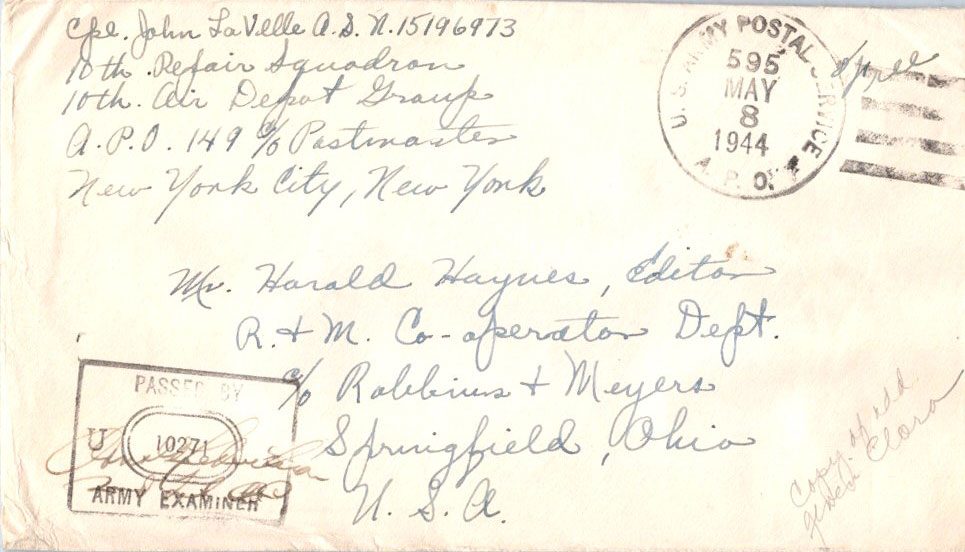 Cpl. John LaVelle A.S.N. 15196973
10th. Repair Squadron
10th. Air Depot Group
A.P.O. 149 c/o Postmaster
New York City, New York
U.S. ARMY POSTAL SERVICE
595
MAY
8
1944
A.P.O.
Mr. Harold Haynes, Editor
R. & M. Co-operator Dept.
c/o Robbins & Meyers
Springfield, Ohio
U. S. A.
PASSED BY
U
10271
ARMY EXAMINER
Copy of add.
Clara